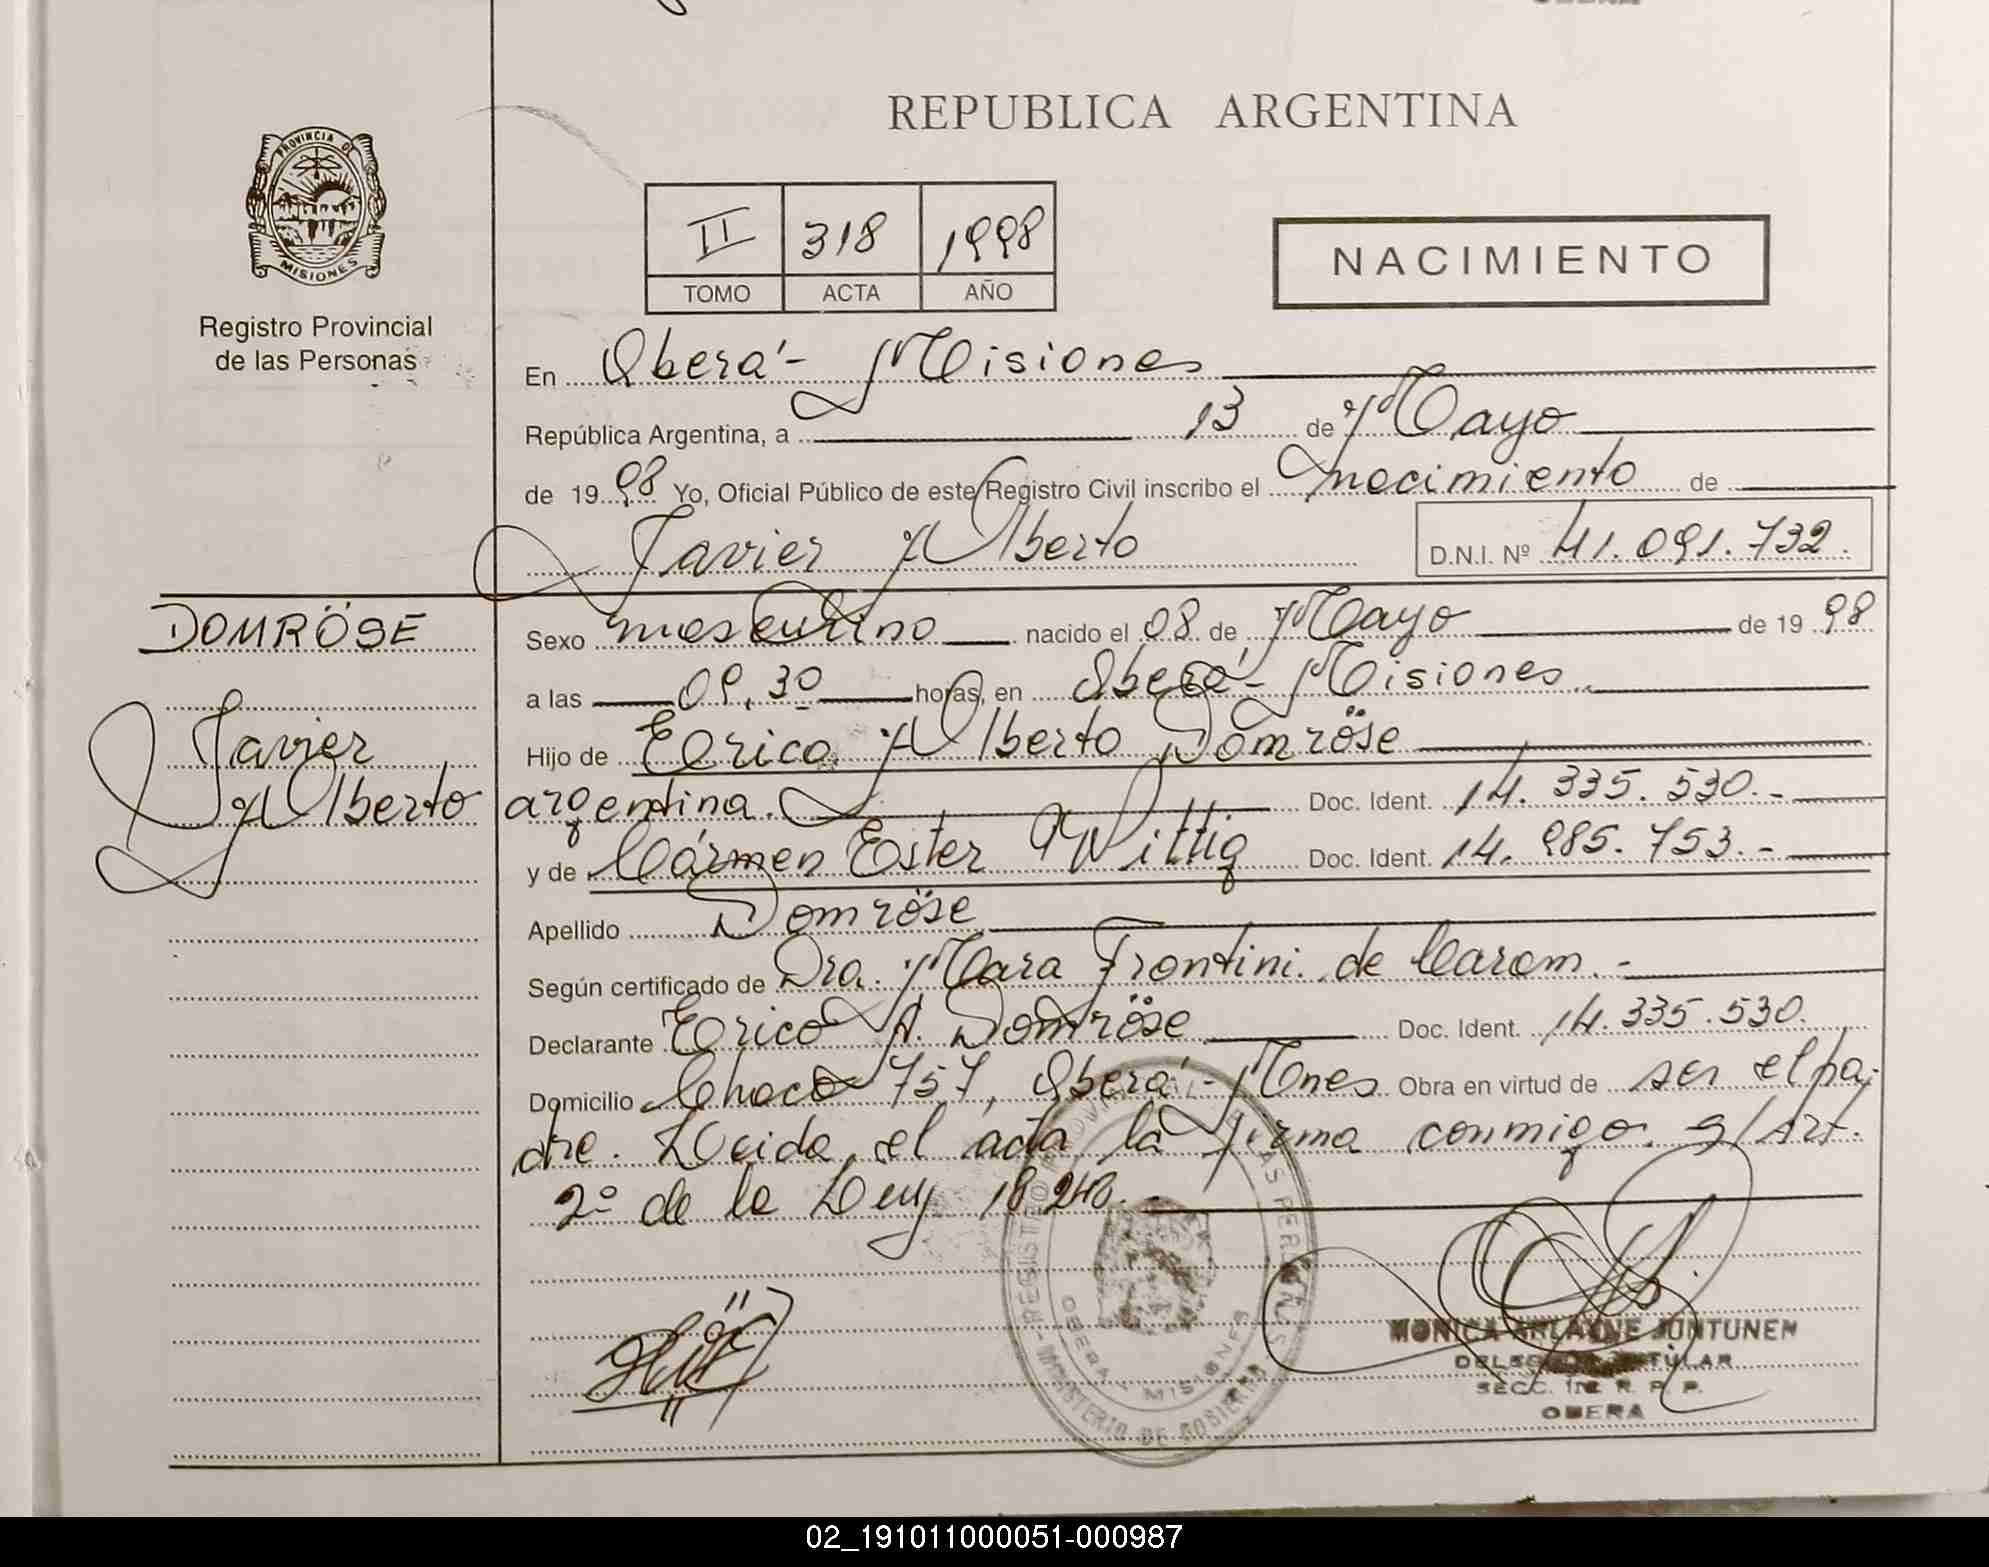 REPUBLICA ARGENTINA
PROVINCIA DE
MISIONES
Registro Provincial
de las Personas
II 318 1998
TOMO ACTA AÑO
NACIMIENTO
En Oberá - Misiones
República Argentina, a 13 de Mayo
de 1998 Yo, Oficial Público de este Registro Civil inscribo el nacimiento de
Javier Alberto D.N.I. Nº 41.091.732.
DOMRÖSE
Javier
Alberto
Sexo masculino nacido el 08 de Mayo de 1998
a las 09,30 horas, en Oberá - Misiones
Hijo de Erico Alberto Domröse
argentina. Doc. Ident. 14.335.530.-
y de Cármen Ester Wittig Doc. Ident. 14.985.753.-
Apellido Domröse
Según certificado de Dra. Mara Frontini de Carom.-
Declarante Erico A. Domröse Doc. Ident. 14.335.530.
Domicilio Chaco 757, Oberá - Mnes Obra en virtud de ser el pa-
dre. Leida el acta la firma conmigo. s/Art.
2º de la Ley 18.248.-
OBERA MISIONES
MINISTERIO DE GOBIERNO
MONICA JUNTUNEN
TITULAR
SECC. R. P. P.
OBERA
02_191011000051-000987